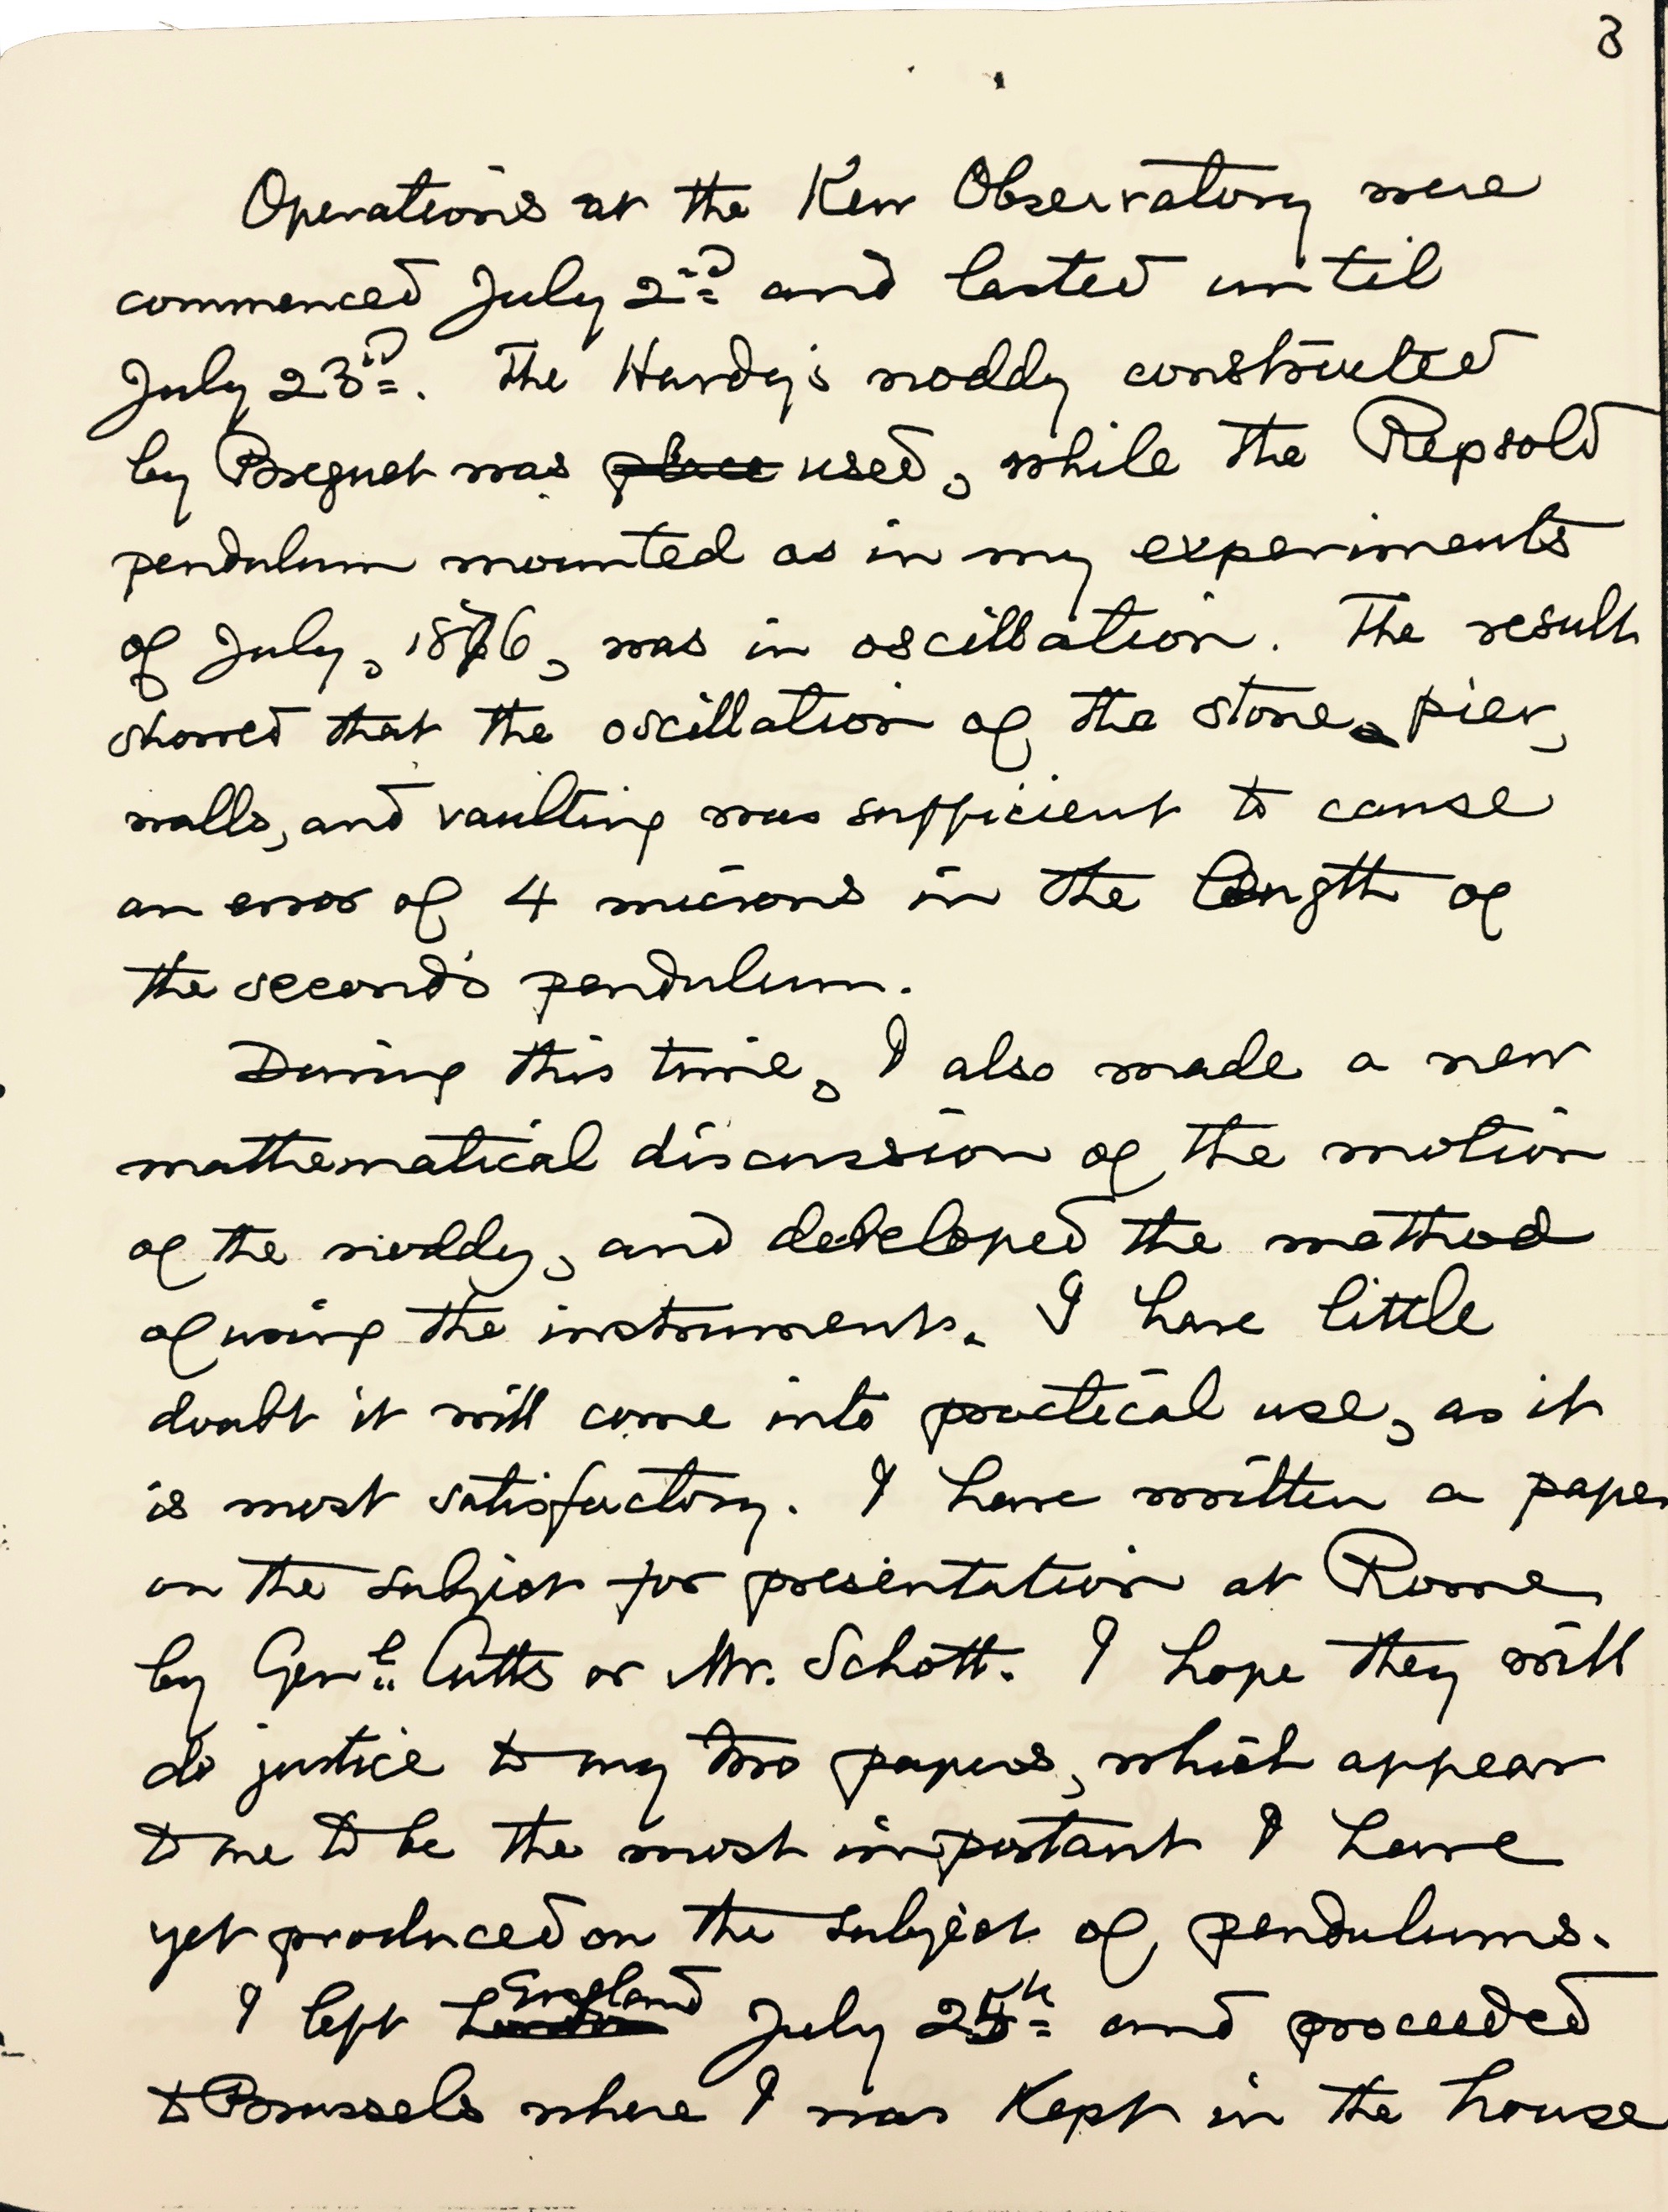 3
Operations at the Kew Observatory were
commenced July 2nd and lasted until
July 23rd. The Hardy's noddy constructed
by Breguet was place used, while the Repsold
pendulum mounted as in my experiments
of July, 1876, was in oscillation. The result
showed that the oscillation of the stone pier,
walls, and vaulting was sufficient to cause
an error of 4 microns in the length of
the second's pendulum.
During this time, I also made a new
mathematical discussion of the motion
of the noddy, and developed the method
of using the instrument. I have little
doubt it will come into practical use, as it
is most satisfactory. I have written a paper
on the subject for presentation at Rome
by Genl. Cutts or Mr. Schott. I hope they will
do justice to my two papers, which appear
to me to be the most important I have
yet produced on the subject of pendulums.
I left London England July 25th and proceeded
to Brussels where I was kept in the house